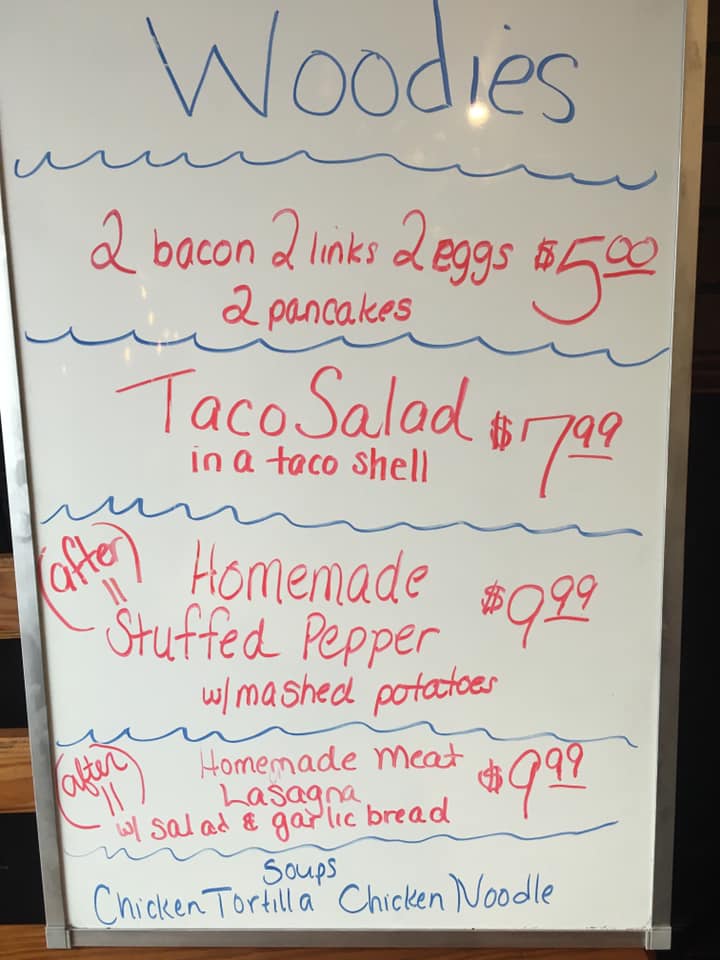 Woodies
2 bacon 2 links 2 eggs $5.00
2 pancakes
Taco Salad $7.99
in a taco shell
(after 11) Homemade $9.99
Stuffed Pepper
w/ mashed potatoes
(after 11) Homemade Meat $9.99
Lasagna
w/ salad & garlic bread
Soups
Chicken Tortilla Chicken Noodle